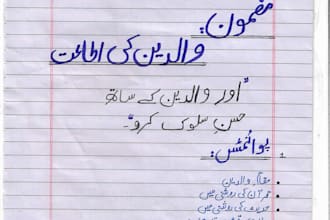 مضمون:
والدین کی اطاعت
"اور والدین کے ساتھ
حسنِ سلوک کرو"۔
پوائنٹس:
والدین
قرآن کی روشنی میں
حدیث کی روشنی میں